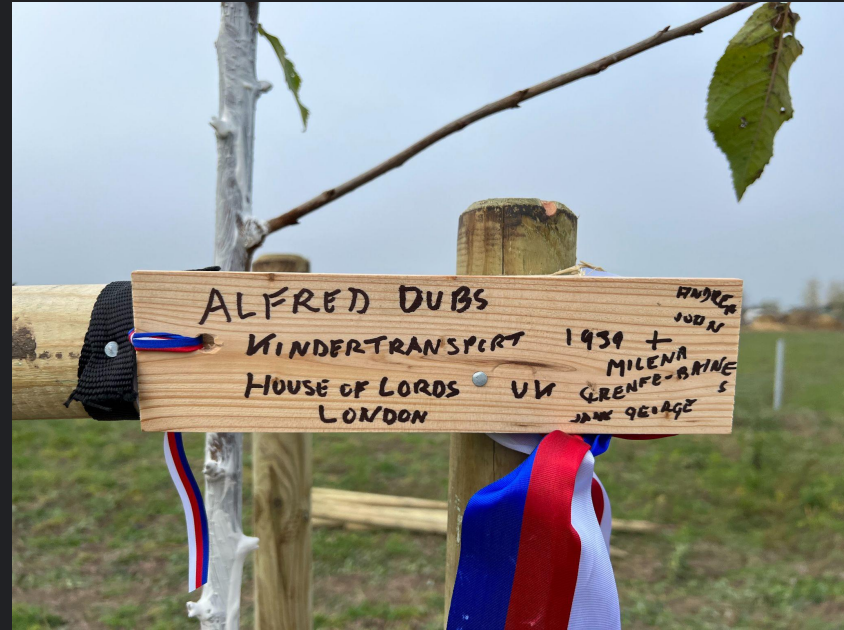 ALFRED DUBS
KINDERTRANSPORT 1939 +
HOUSE OF LORDS UK
LONDON
ANDREA
JOHN
MILENA
GRENFE-BAINE
S
GEORGE